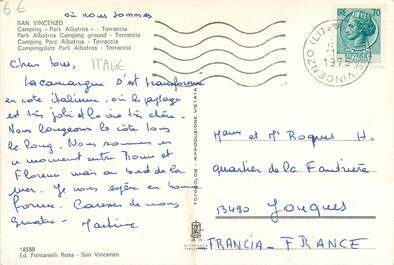 6€
où nous sommes
SAN VINCENZO
Camping «Park Albatros» - Torraccia
Park Albatros Camping ground - Torraccia
Camping Parc Albatros - Torraccia
Campingplatz Park Albatros - Torraccia
ITALIE
Chers tous,
La camargue s'est transformée
en côte italienne, où le paysage
est très joli et la vie très chère.
Nous longeons la côte tous
le long. Nous sommes en
ce moment entre Rome et
Florence mais au bord de la
mer. Je vous espère en bonne
forme. Caresses de nous
quatre - Martine
18359
Ed. Fontanelli Rosa - San Vincenzo
FOTOCOLOR - RIPRODUZIONE VIETATA
VINCENZO (LI)
1975
70
Mme et Mr Roques H.
quartier de la
13490 Jouques
FRANCIA - FRANCE